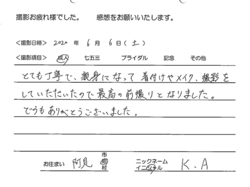 撮影お疲れ様でした。 感想をお願いいたします。
<撮影日時> 2020 年 6 月 6 日 (土)
<撮影項目> 成人 七五三 ブライダル 記念 その他
とても丁寧で、親身になって 着付けやメイク、撮影を
していただいたので最高の前撮りとなりました。
どうもありがとうございました。
お住まい 阿見 市 町 村 ニックネーム イニシャル K.A